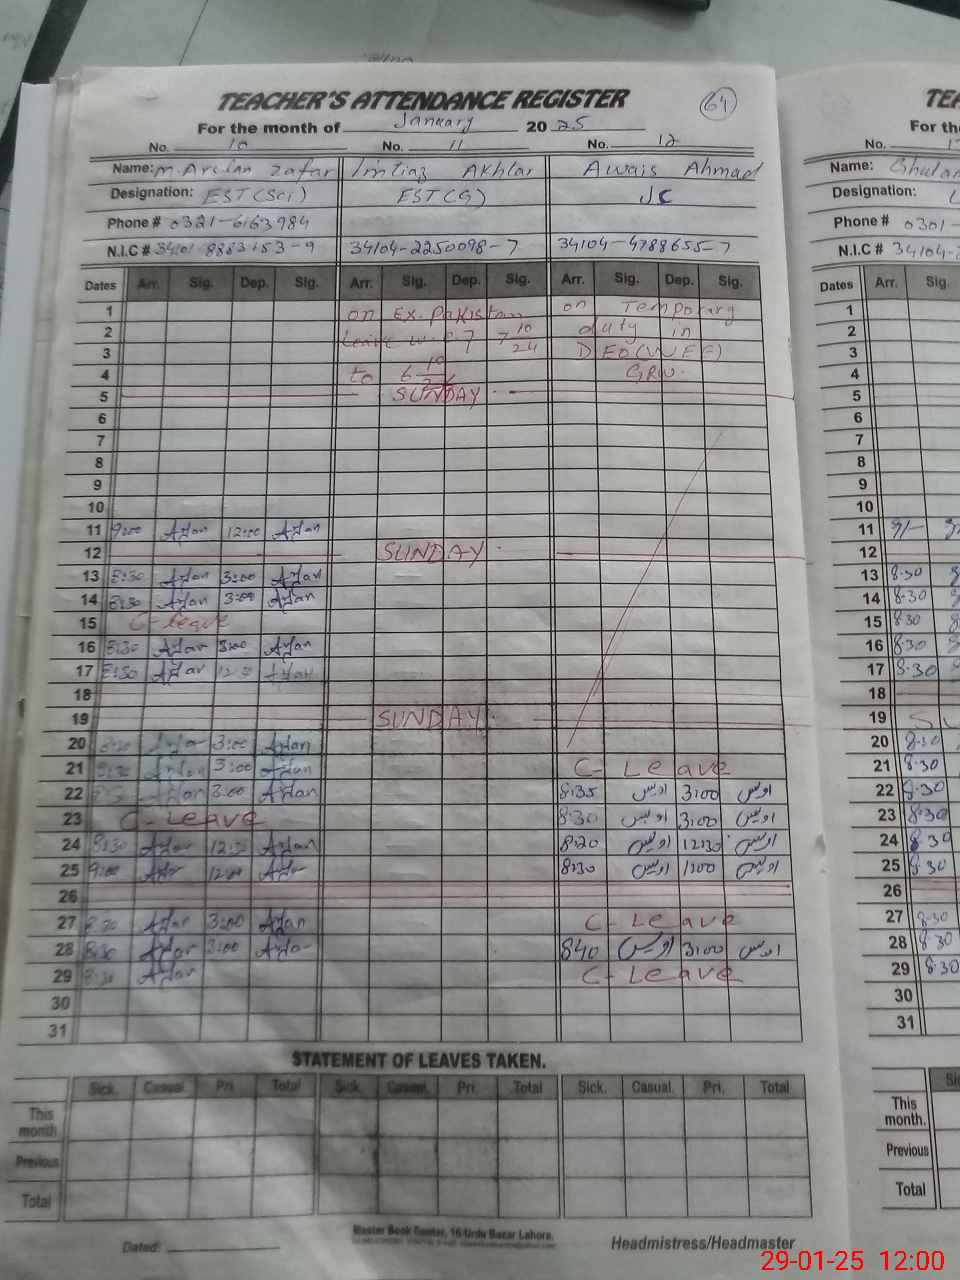 TEACHER'S ATTENDANCE REGISTER
64
For the month of January 2025
No. 10 No. 11 No. 12
Name: M. Arslan Zafar Imtiaz Akhtar Awais Ahmad
Designation: EST(Sci) EST(G) JC
Phone # 0321-6163984
N.I.C # 34104-2250098-7 34104-4788655-7
Dates Arr. Sig. Dep. Sig. Arr. Sig. Dep. Sig. Arr. Sig. Dep. Sig.
1 on Ex. Pakistan on Temporary
2 Leave w.e.f 7 10/24 duty in
3 DEO(WEE)
4 to 6 GRW.
5 SUNDAY
6
7
8
9
10
11 9:00 Arslan 12:00 Arslan
12 SUNDAY
13 8:30 Arslan 3:00 Arslan
14 8:30 Arslan 3:00 Arslan
15 C-leave
16 8:30 Arslan 3:00 Arslan
17 8:30 Arslan 12:30 Arslan
18
19 SUNDAY
20 8:30 Arslan 3:00 Arslan
21 8:30 Arslan 3:00 Arslan C-Leave
22 8:30 Arslan 3:00 Arslan 8:35 اویس 3:00 اویس
23 C-Leave 8:30 اویس 3:00 اویس
24 8:30 Arslan 12:30 Arslan 8:20 اویس 12:30 اویس
25 9:00 Arslan 12:00 Arslan 8:30 اویس 1:00 اویس
26
27 8:30 Arslan 3:00 Arslan C-Leave
28 8:30 Arslan 3:00 Arslan 8:40 اویس 3:00 اویس
29 8:30 Arslan C-Leave
30
31
STATEMENT OF LEAVES TAKEN.
Sick. Casual. Pri. Total Sick. Casual. Pri. Total Sick. Casual. Pri. Total
This month
Previous
Total
Master Book Center, 16-Urdu Bazar Lahore.
Dated: Headmistress/Headmaster
TEA
For th
No.
Name: Ghulam
Designation:
Phone # 0301-
N.I.C # 34104-
Dates Arr. Sig.
1
2
3
4
5
6
7
8
9
10
11 9/-
12
13 8:30
14 8:30
15 8:30
16 8:30
17 8:30
18
19 SU
20 8:30
21 8:30
22 8:30
23 8:30
24 8:30
25 8:30
26
27 8:30
28 8:30
29 8:30
30
31
This month.
Previous
Total
29-01-25 12:00